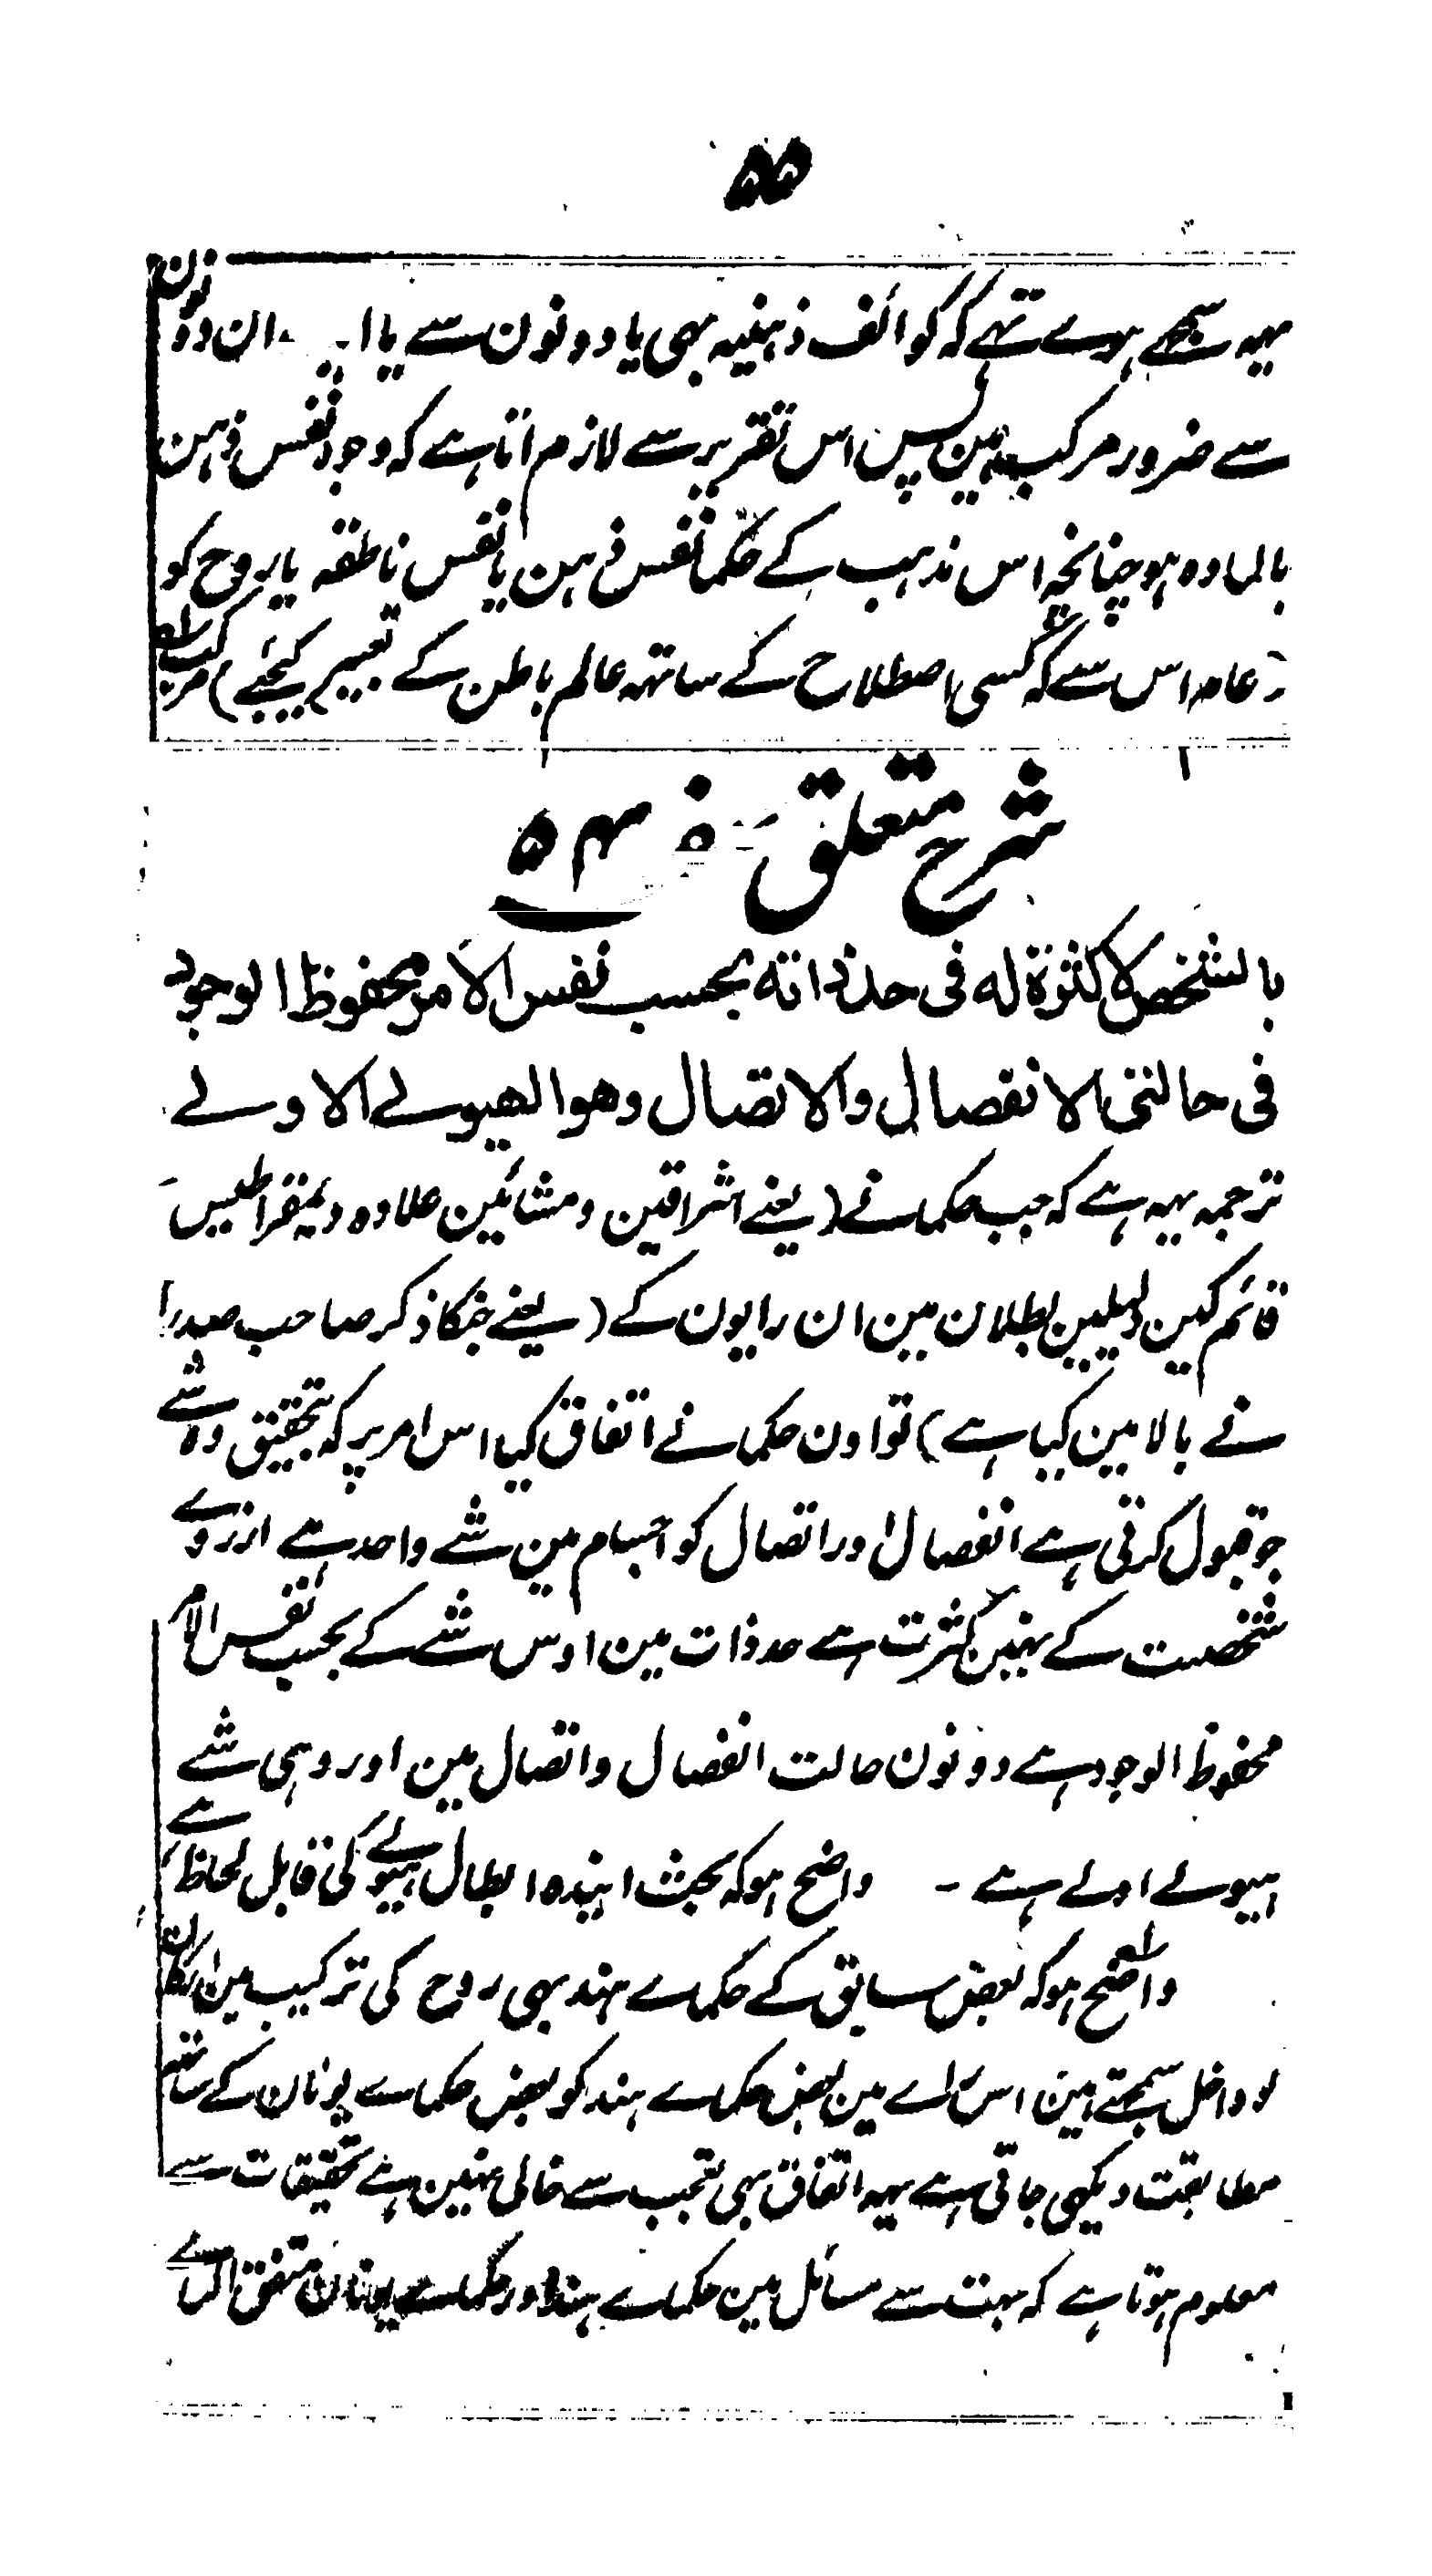 ۵۵
یہہ سمجھے ہوے تہے کہ کوائف ذہنیہ بہی یا دونون سے یا ان دونون
سے ضرور مرکب ہین پس اس تقریر سے لازم اتا ہے کہ وجود نفس ذہن
بالمادہ ہو چنانچہ اس مذہب کے حکما نفس ذہن یا نفس ناطقہ یا روح کو
عام اس سے کہ کسی اصطلاح کے ساتہہ عالم باطن کے تعبیر کیجئے) مرکب
شرح متعلق
بالشخص لا کثرة له فی حد ذاته بحسب نفس الامر محفوظ الوجود
فی حالتی الانفصال والاتصال وهو الهیولے الاولے
ترجمہ یہہ ہے کہ جب حکما نے (یعنے اشراقین و مشائین علاوہ دیمقراطیس
قائم کین دلیلین بطلان مین ان رایون کے (یعنے جنکا ذکر صاحب صدرا
نے بالا مین کیا ہے) تو اون حکما نے اتفاق کیا اس امر پر کہ بتحقیق وہ شے
جو قبول کرتی ہے انفصال اور اتصال کو اجسام مین شے واحد ہے ازروے
شخصیت کے نہین کثرت ہے حد ذات مین اوس شے کے بحسب نفس الامر
محفوظ الوجود ہے دونون حالت انفصال و اتصال مین اور وہی شے
ہیولے اولے ہے - واضح ہو کہ بحث ایندہ ابطال ہیولے کی قابل لحاظ ہے
واضح ہو کہ بعض سابق کے حکماے ہند بہی روح کی ترکیب مین ارکان
کو داخل سمجتے ہین اس راے مین بعض حکماے ہند کو بعض حکماے یونان کے ساتہہ
مطابقت دیکہی جاتی ہے یہہ اتفاق بہی تعجب سے خالی نہین ہے تحقیقات سے
معلوم ہوتا ہے کہ بہت سے مسائل مین حکماے ہند اور حکماے یونان متفق الراے